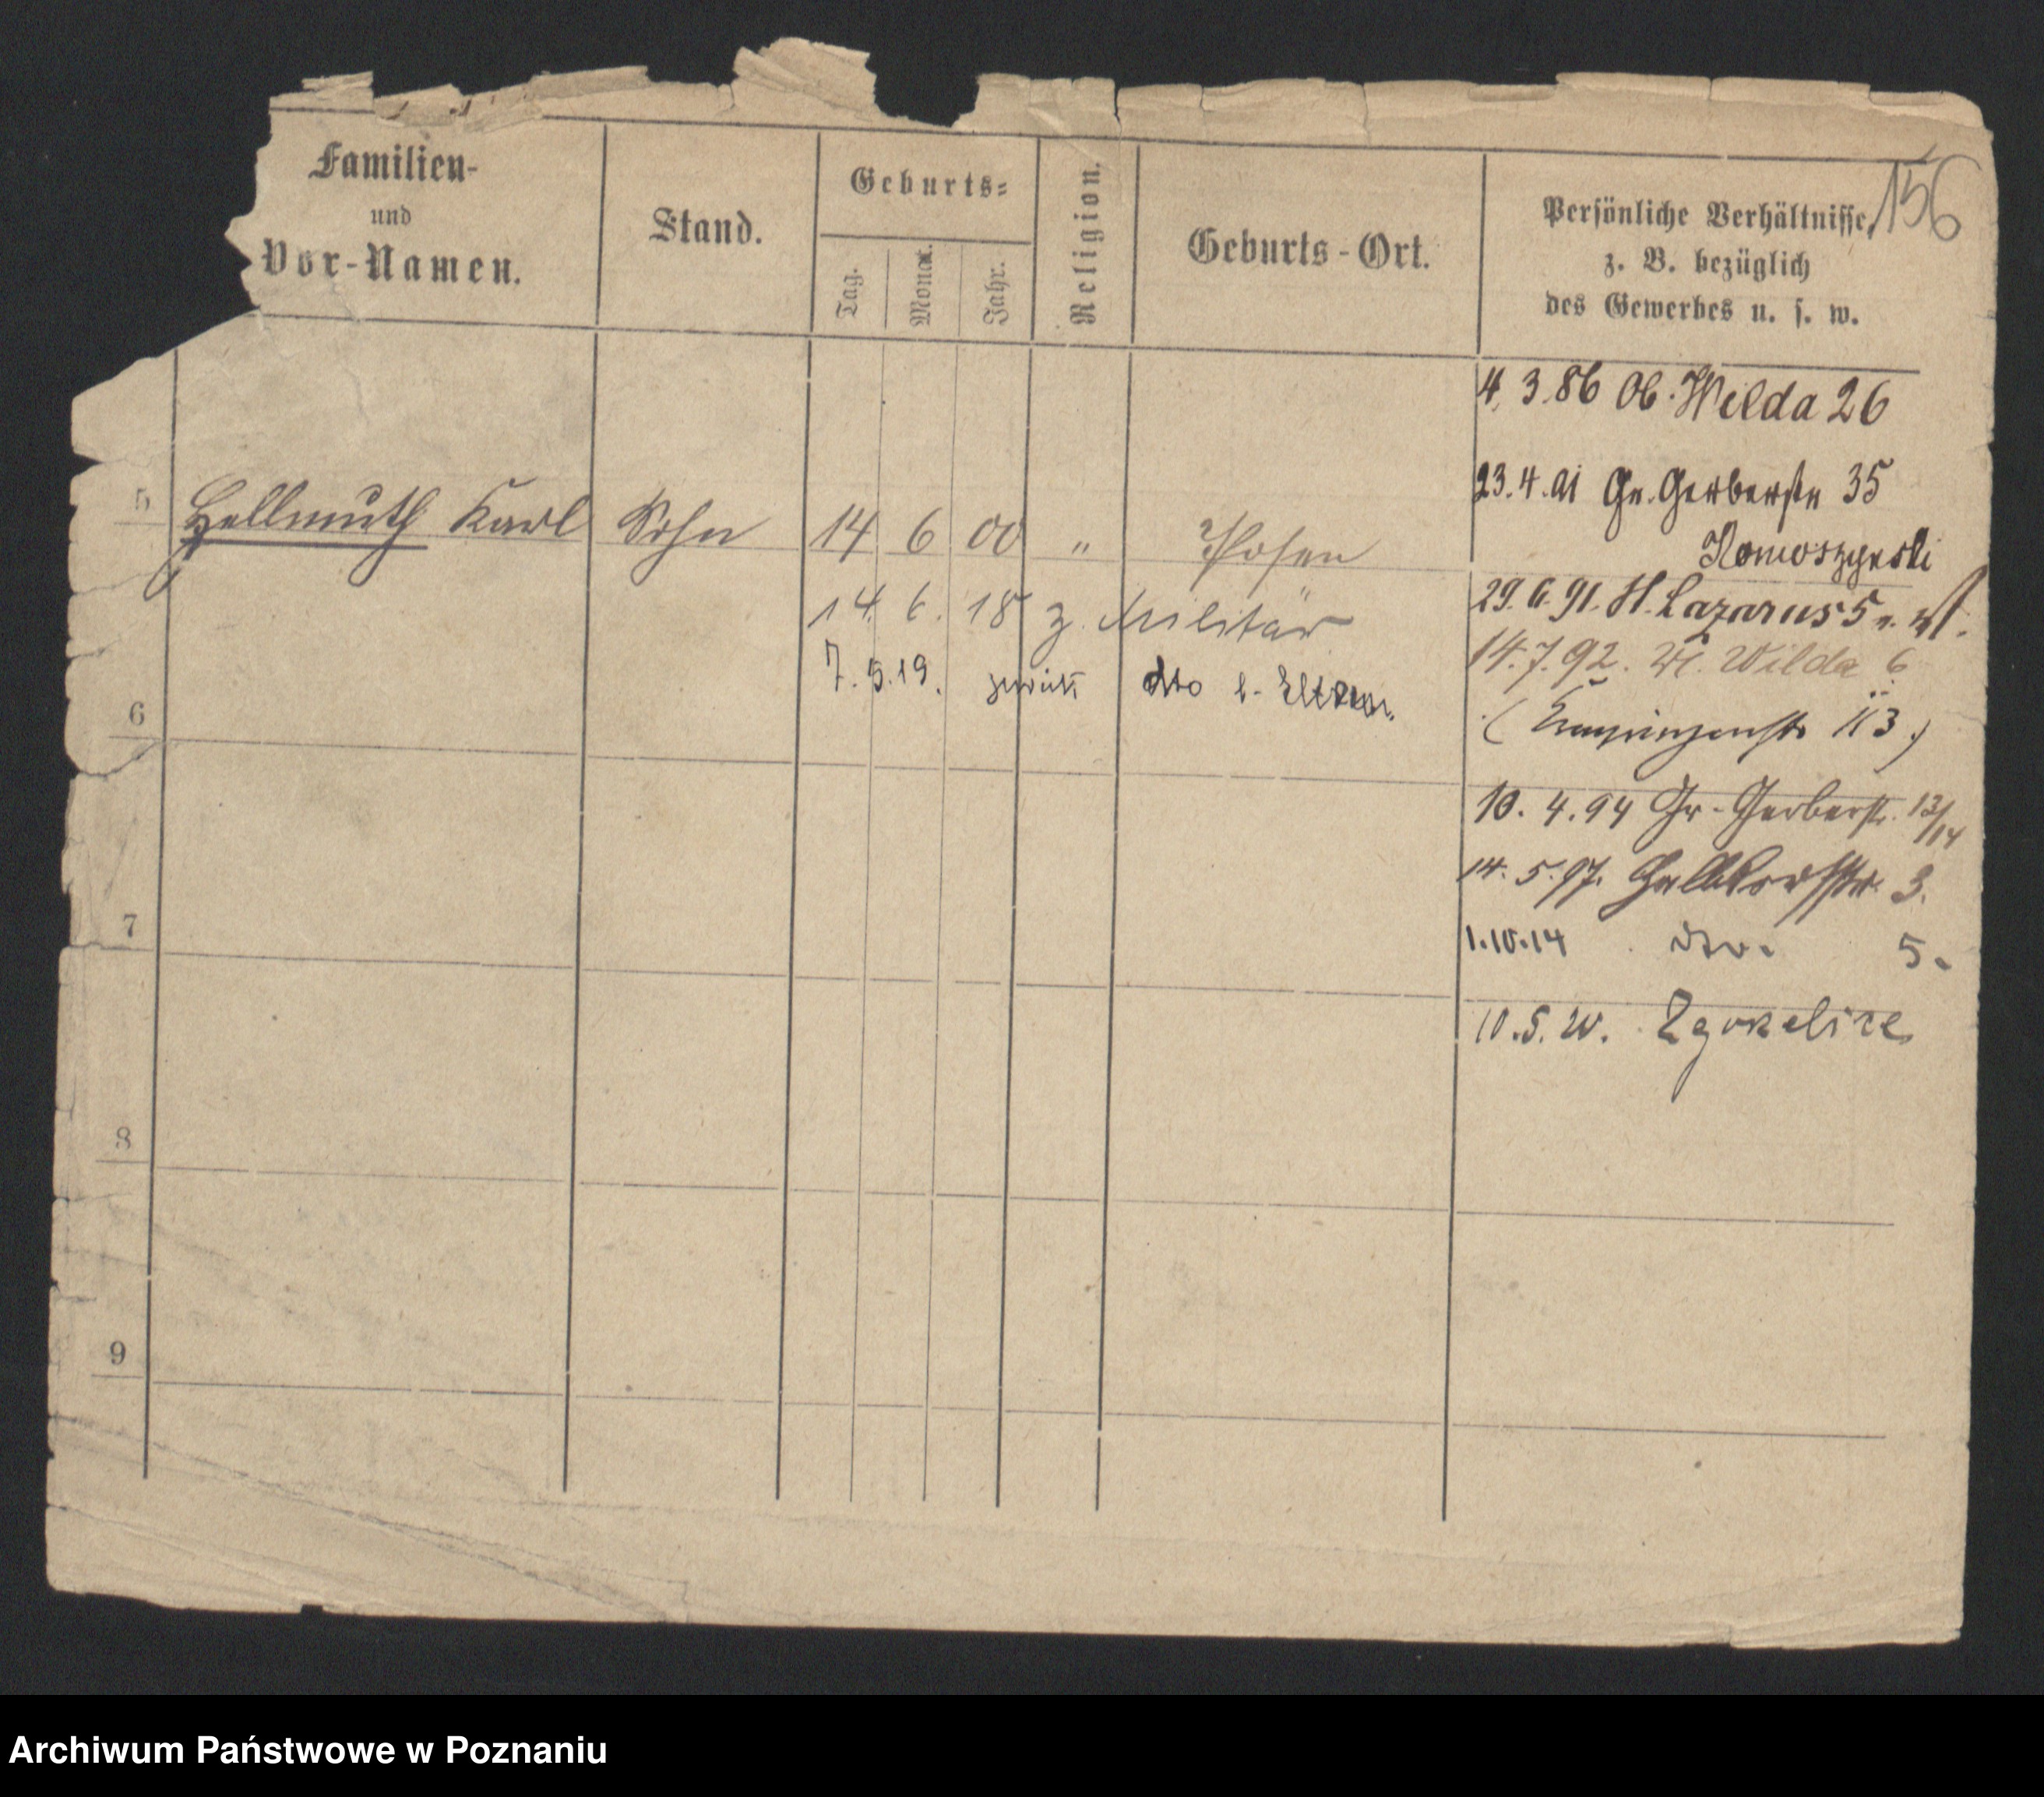 156
Familien-
und
Vor-Namen.
Stand.
Geburts-
Tag.
Monat.
Jahr.
Religion.
Geburts-Ort.
Persönliche Verhältnisse,
z. B. bezüglich
des Gewerbes u. s. w.
4. 3. 86 Ob. Wilda 26
23. 4. 91 Gr. Gerberstr 35
5 Hellmuth Karl Sohn 14 6 00 " Posen
29. 6. 91. St. Lazarus 5
14. 6. 18 z. Militär
14. 7. 92. Wilda 6
7. 5. 19. zurück dto b. Eltern.
(Kronprinzenstr 113.)
6
10. 4. 94 Gr. Gerberstr. 13/14
14. 5. 97. Halbdorfstr. 3.
7
1.10.14 dto. 5.
10. 5. 20. Zgorzelice
8
9
Archiwum Państwowe w Poznaniu